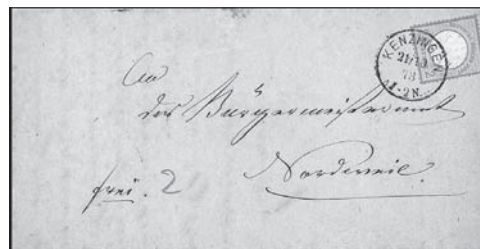 KENZINGEN
1-2N.
An
das Bürgermeisteramt
Nordweil.
frei. 2